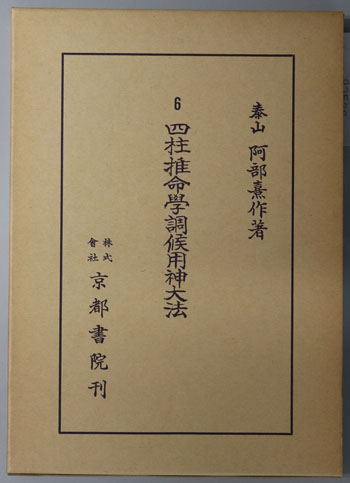 泰山 阿部熹作著
6 四柱推命學調候用神大法
株式會社 京都書院刊